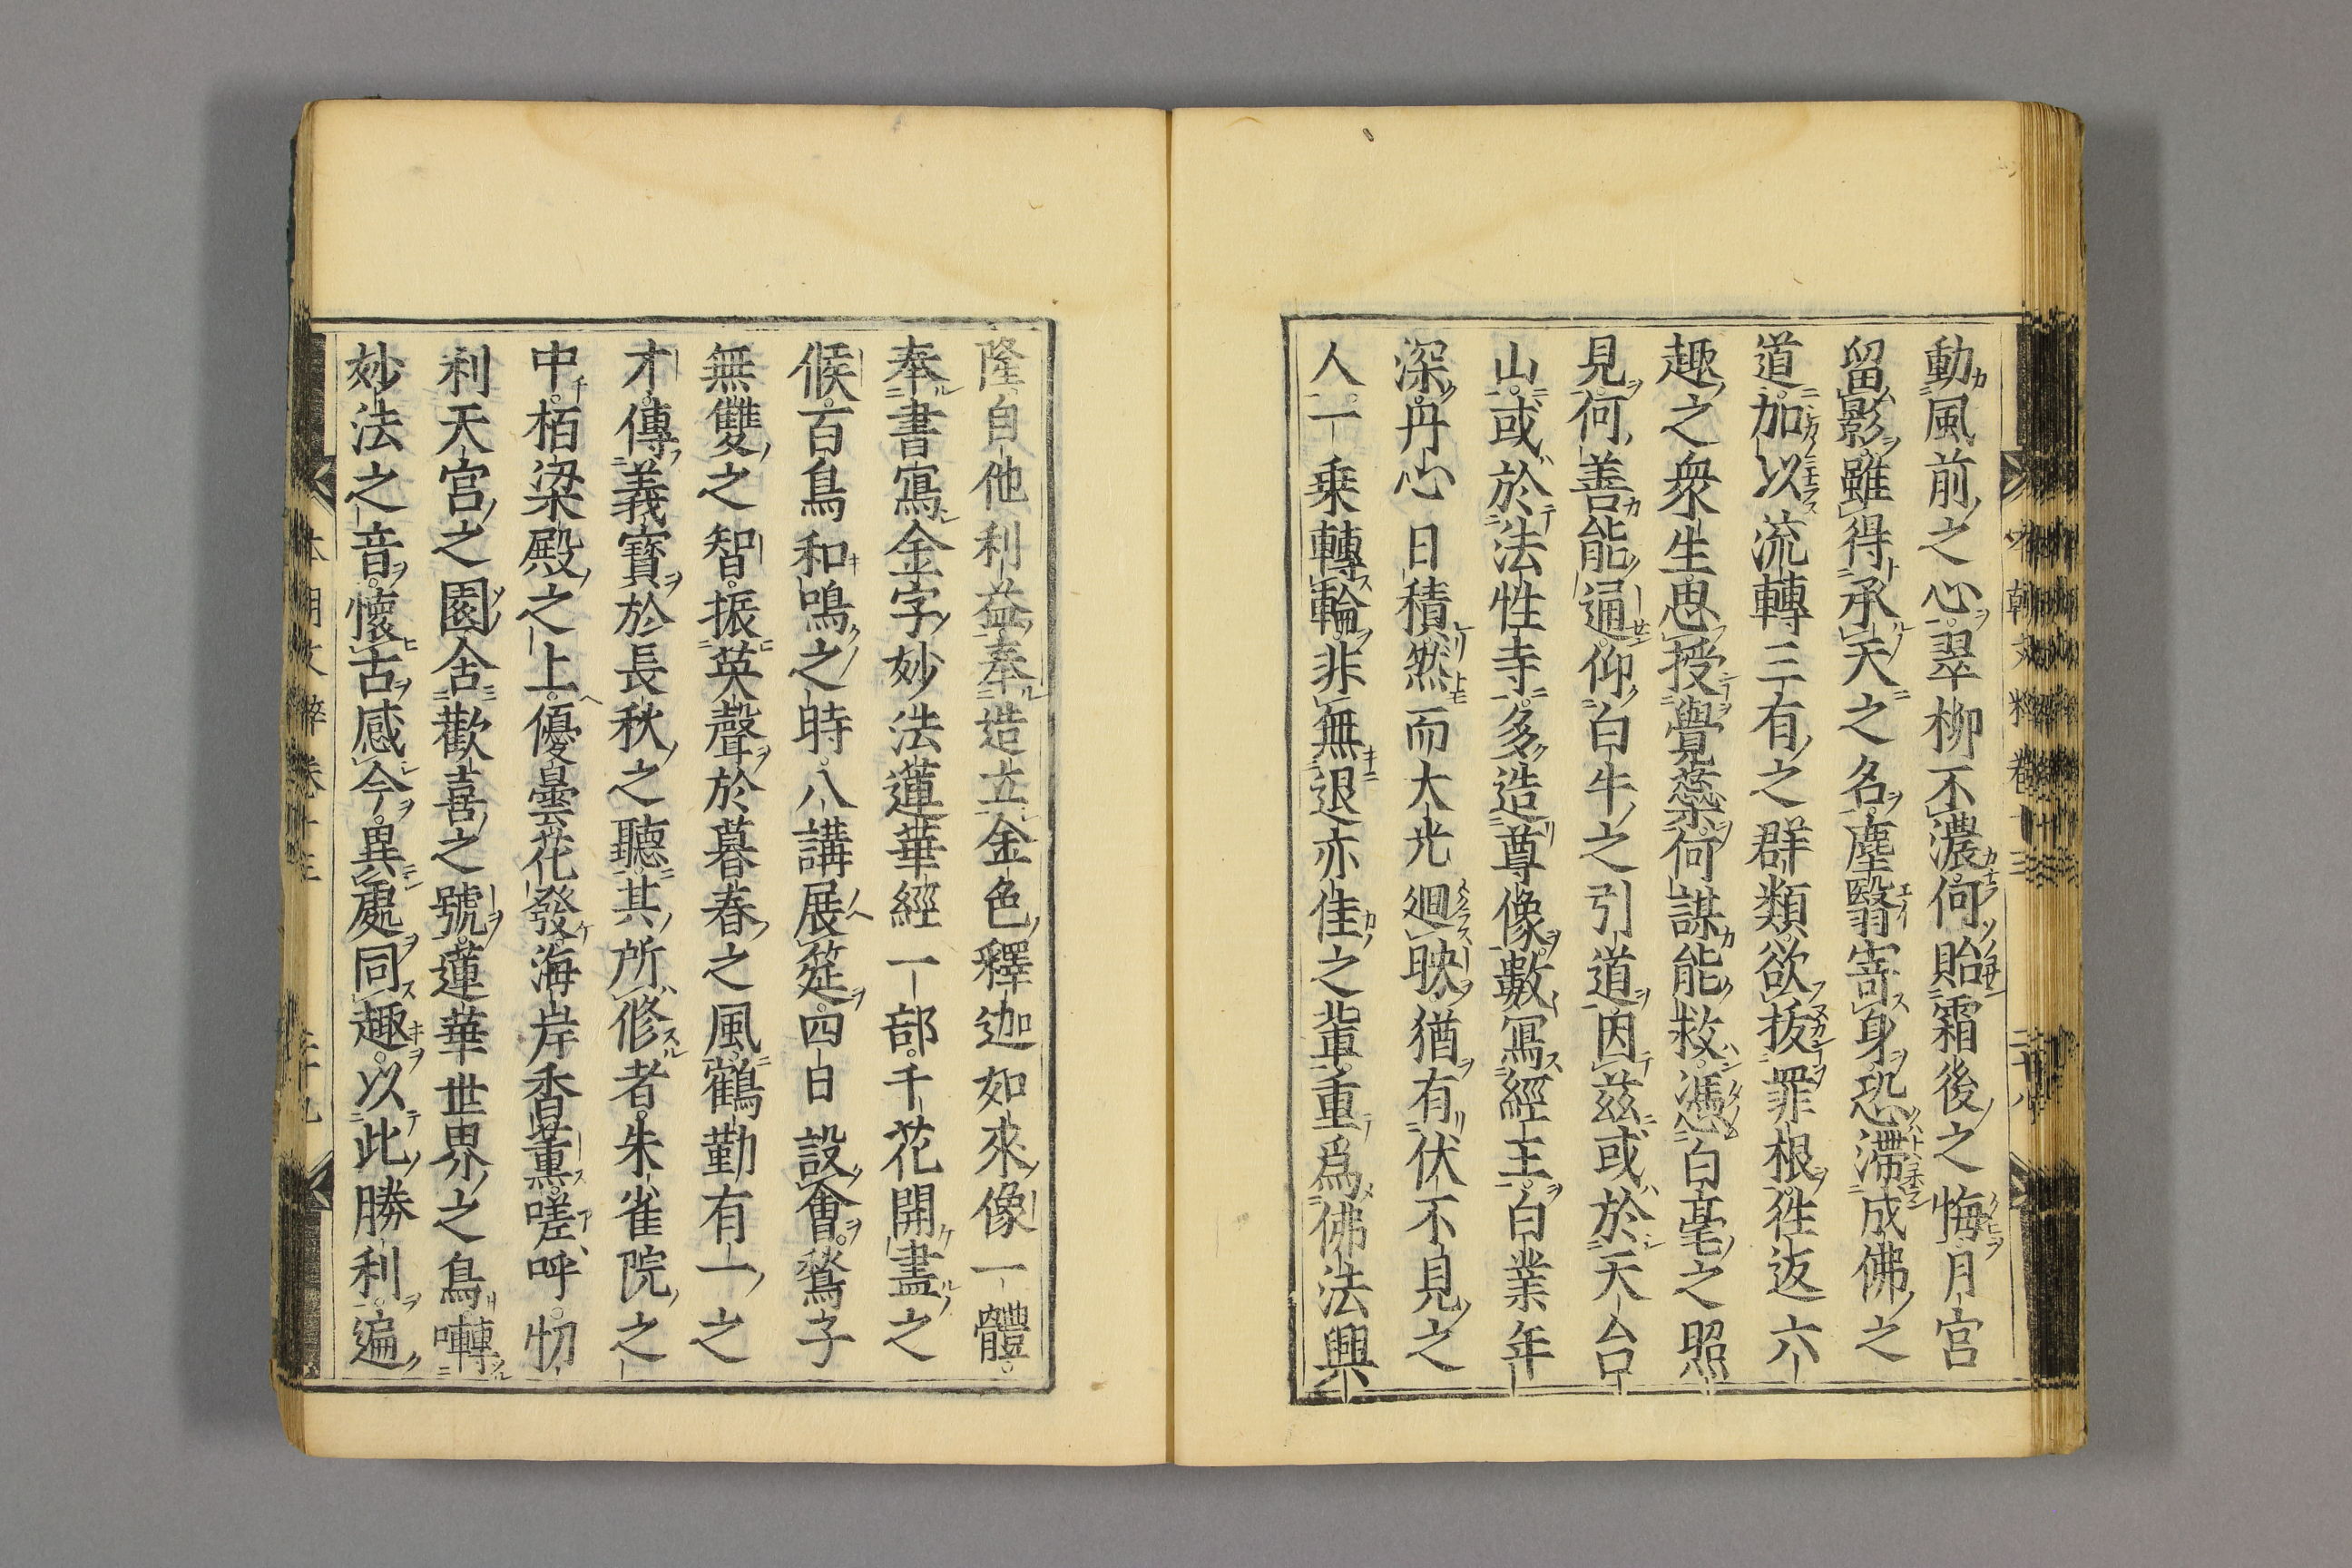 動風前之心翠柳不濃何貽霜後之悔月宮
留影雖得承天之名塵翳寄身恐滯成佛之
道加以流轉三有之群類欲拔罪根徃返六
趣之衆生思授覺蘂何謀能救憑白毫之照
見何善能通仰白牛之引道因茲或於天台
山或於法性寺多造尊像數寫經王白業年
深丹心日積然而大光廻映猶有伏不見之
人一乗轉輪非無退亦佳之輩重爲佛法興
隆自他利益奉造立金色釋迦如來像一體
奉書寫金字妙法蓮華經一部千花開盡之
候百鳥和鳴之時八講展筵四日設會鶖子
無雙之智振英聲於暮春之風鶴勤有一之
才傳義寶於長秋之聽其所修者朱雀院之
中栢梁殿之上優曇花發海岸香薫嗟呼忉
利天宮之園舍歡喜之號蓮華世界之鳥囀
妙法之音懷古感今異處同趣以此勝利遍
本朝文粹卷十三